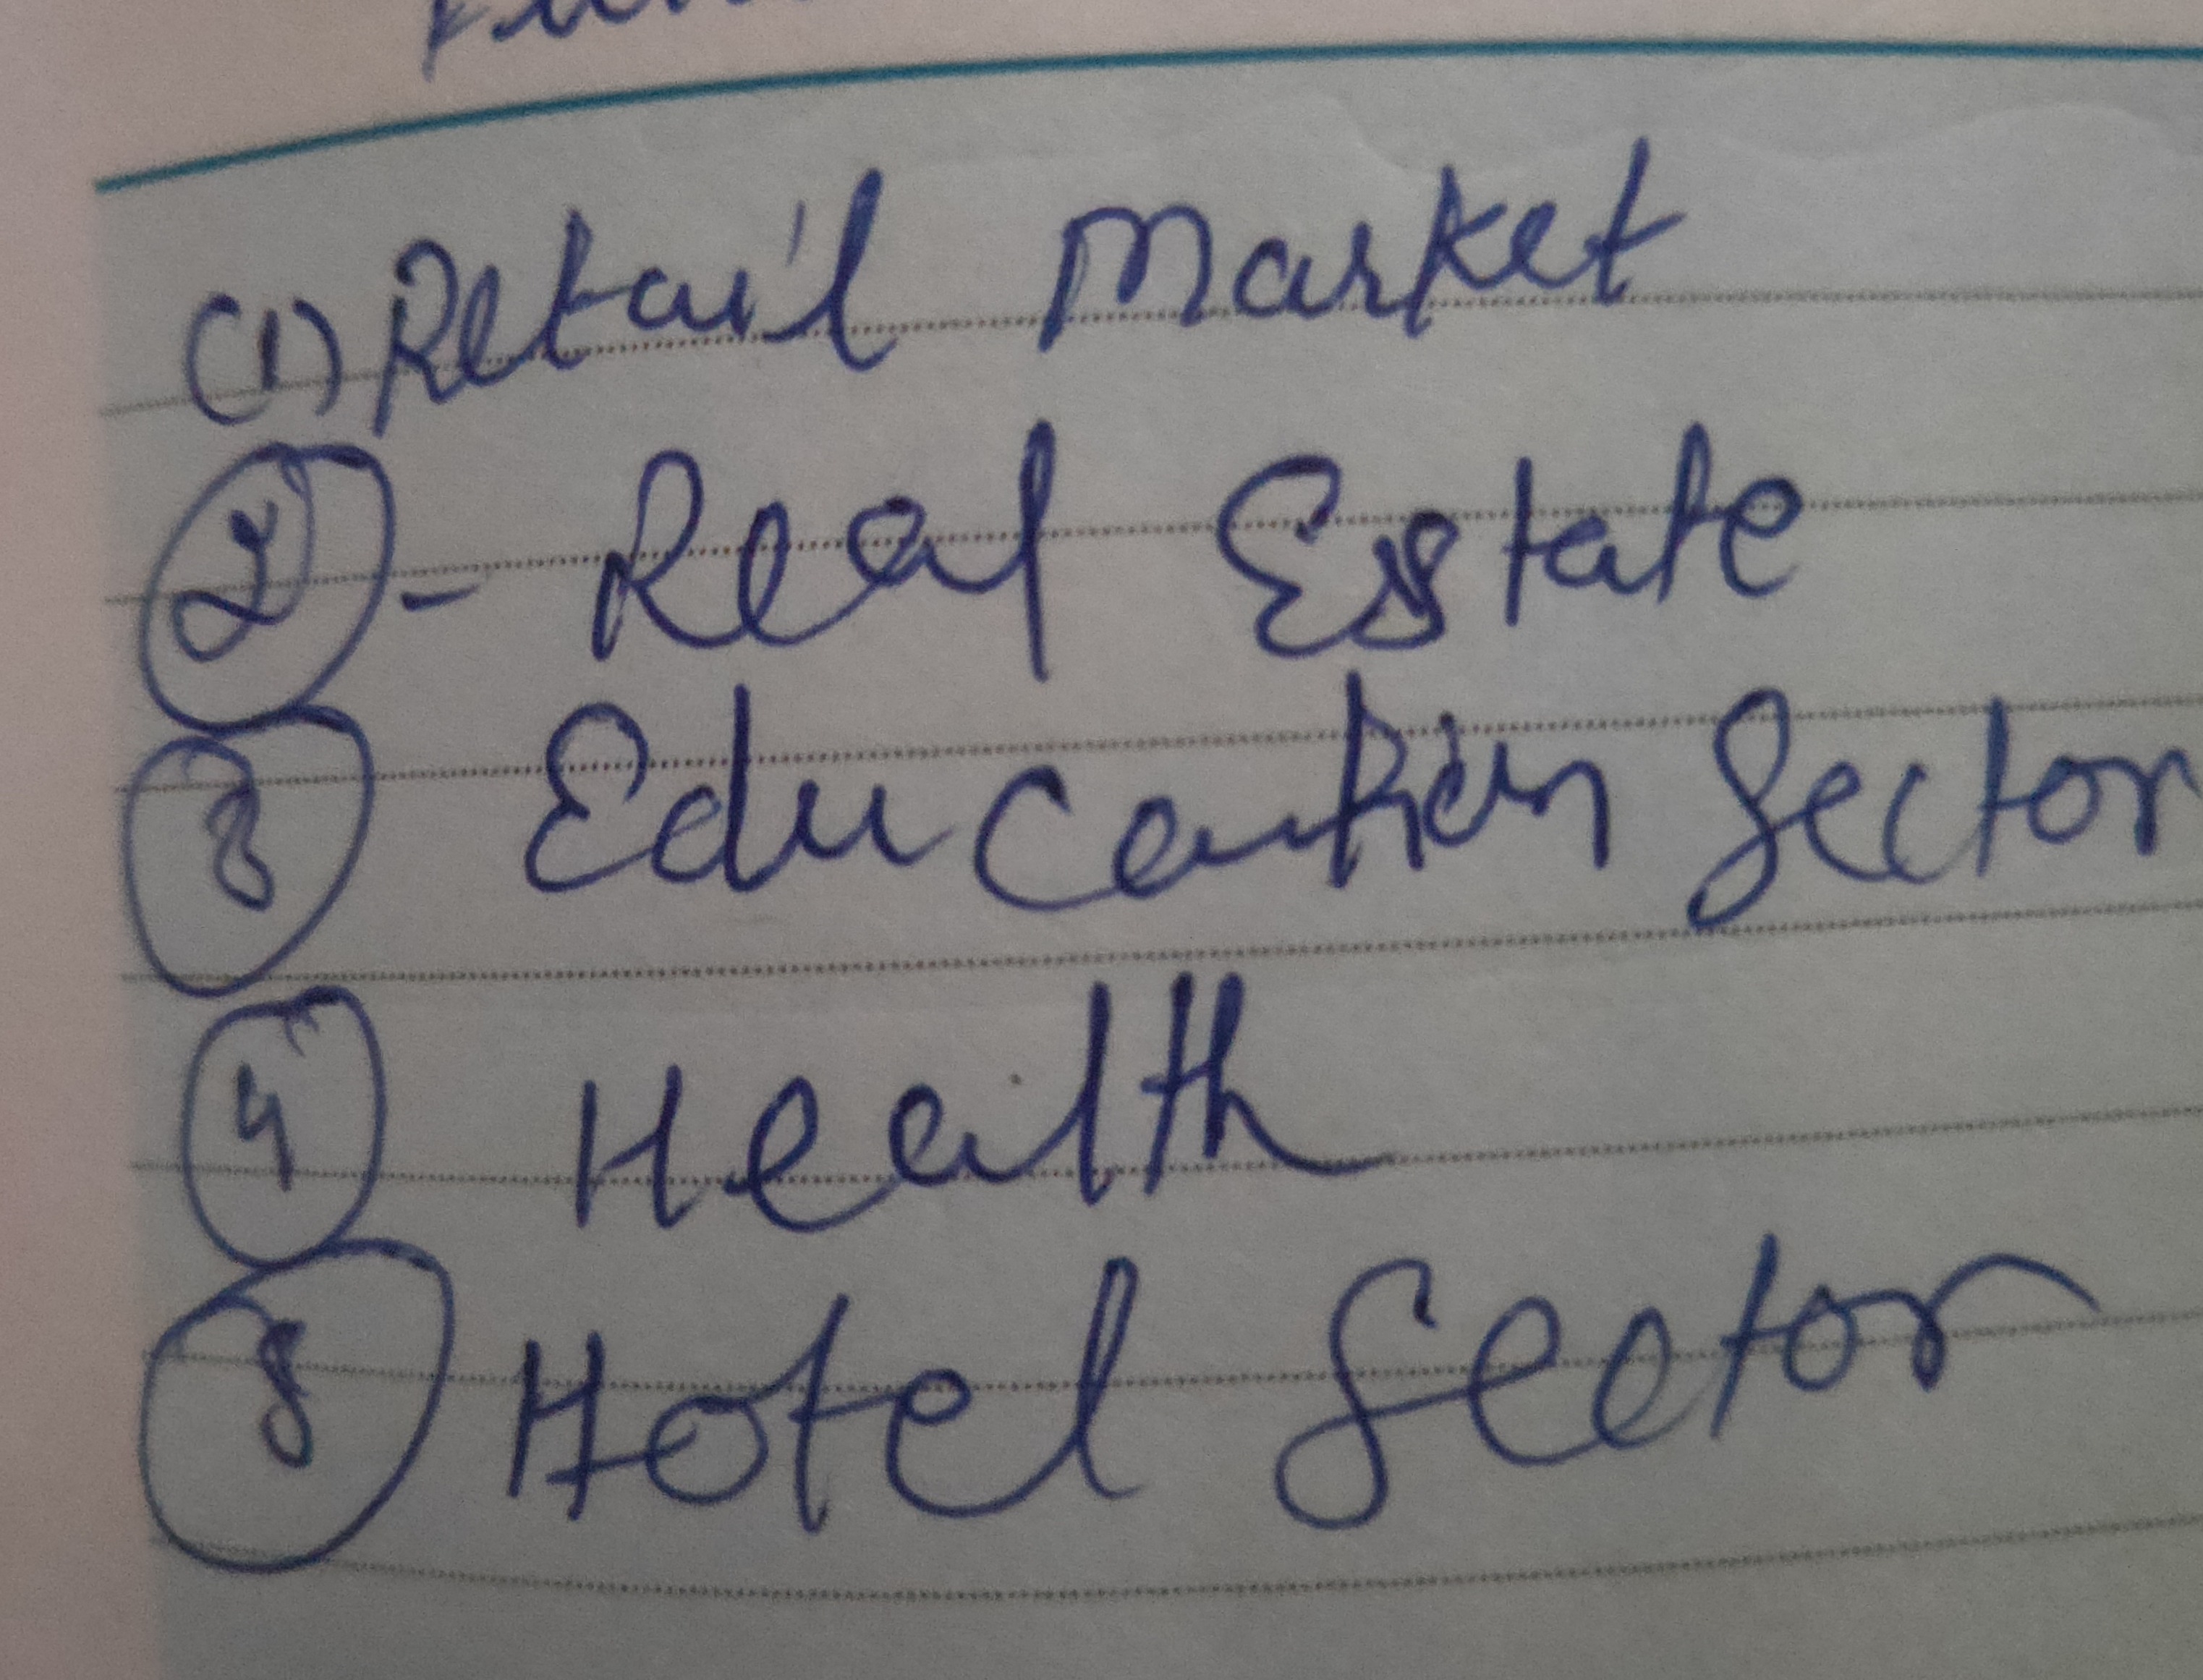 (1) Retail Market
2 - Real Estate
3 Education Sector
4 Health
5 Hotel Sector